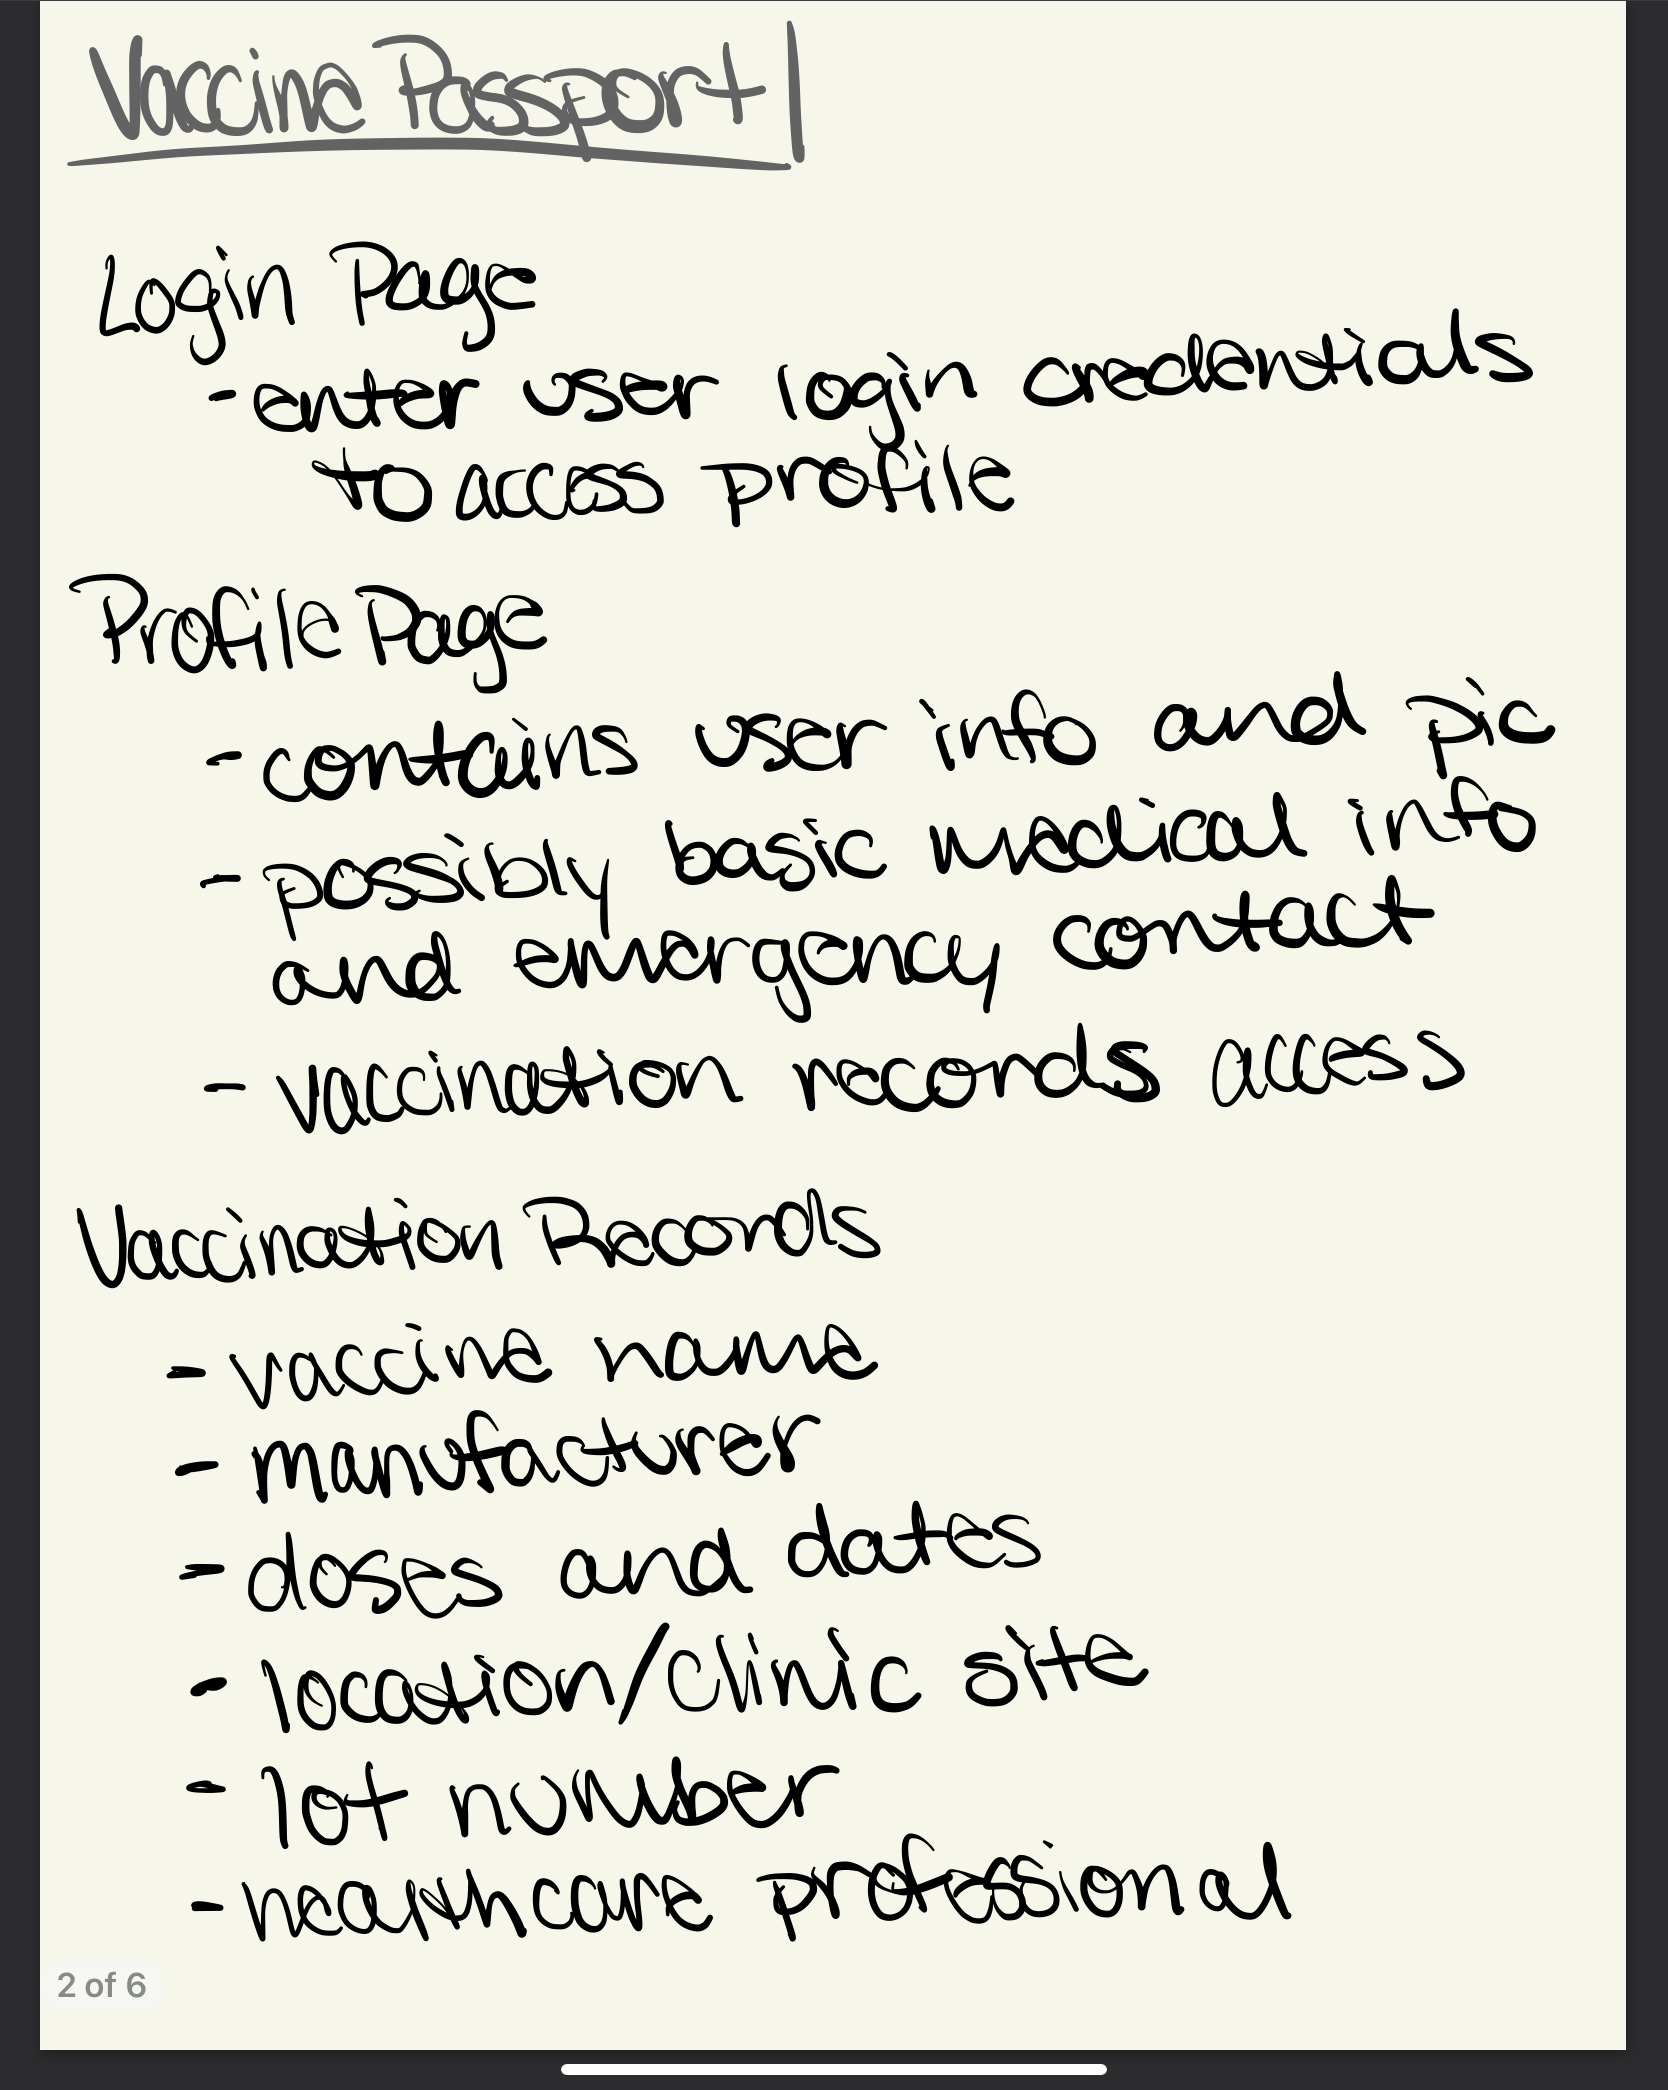 Vaccine Passport
Login Page
- enter user login credentials
to access profile
Profile Page
- contains user info and pic
- possibly basic medical info
and emergency contact
- vaccination records access
Vaccination Records
- vaccine name
- manufacturer
- doses and dates
- location/clinic site
- lot number
- healthcare professional
2 of 6